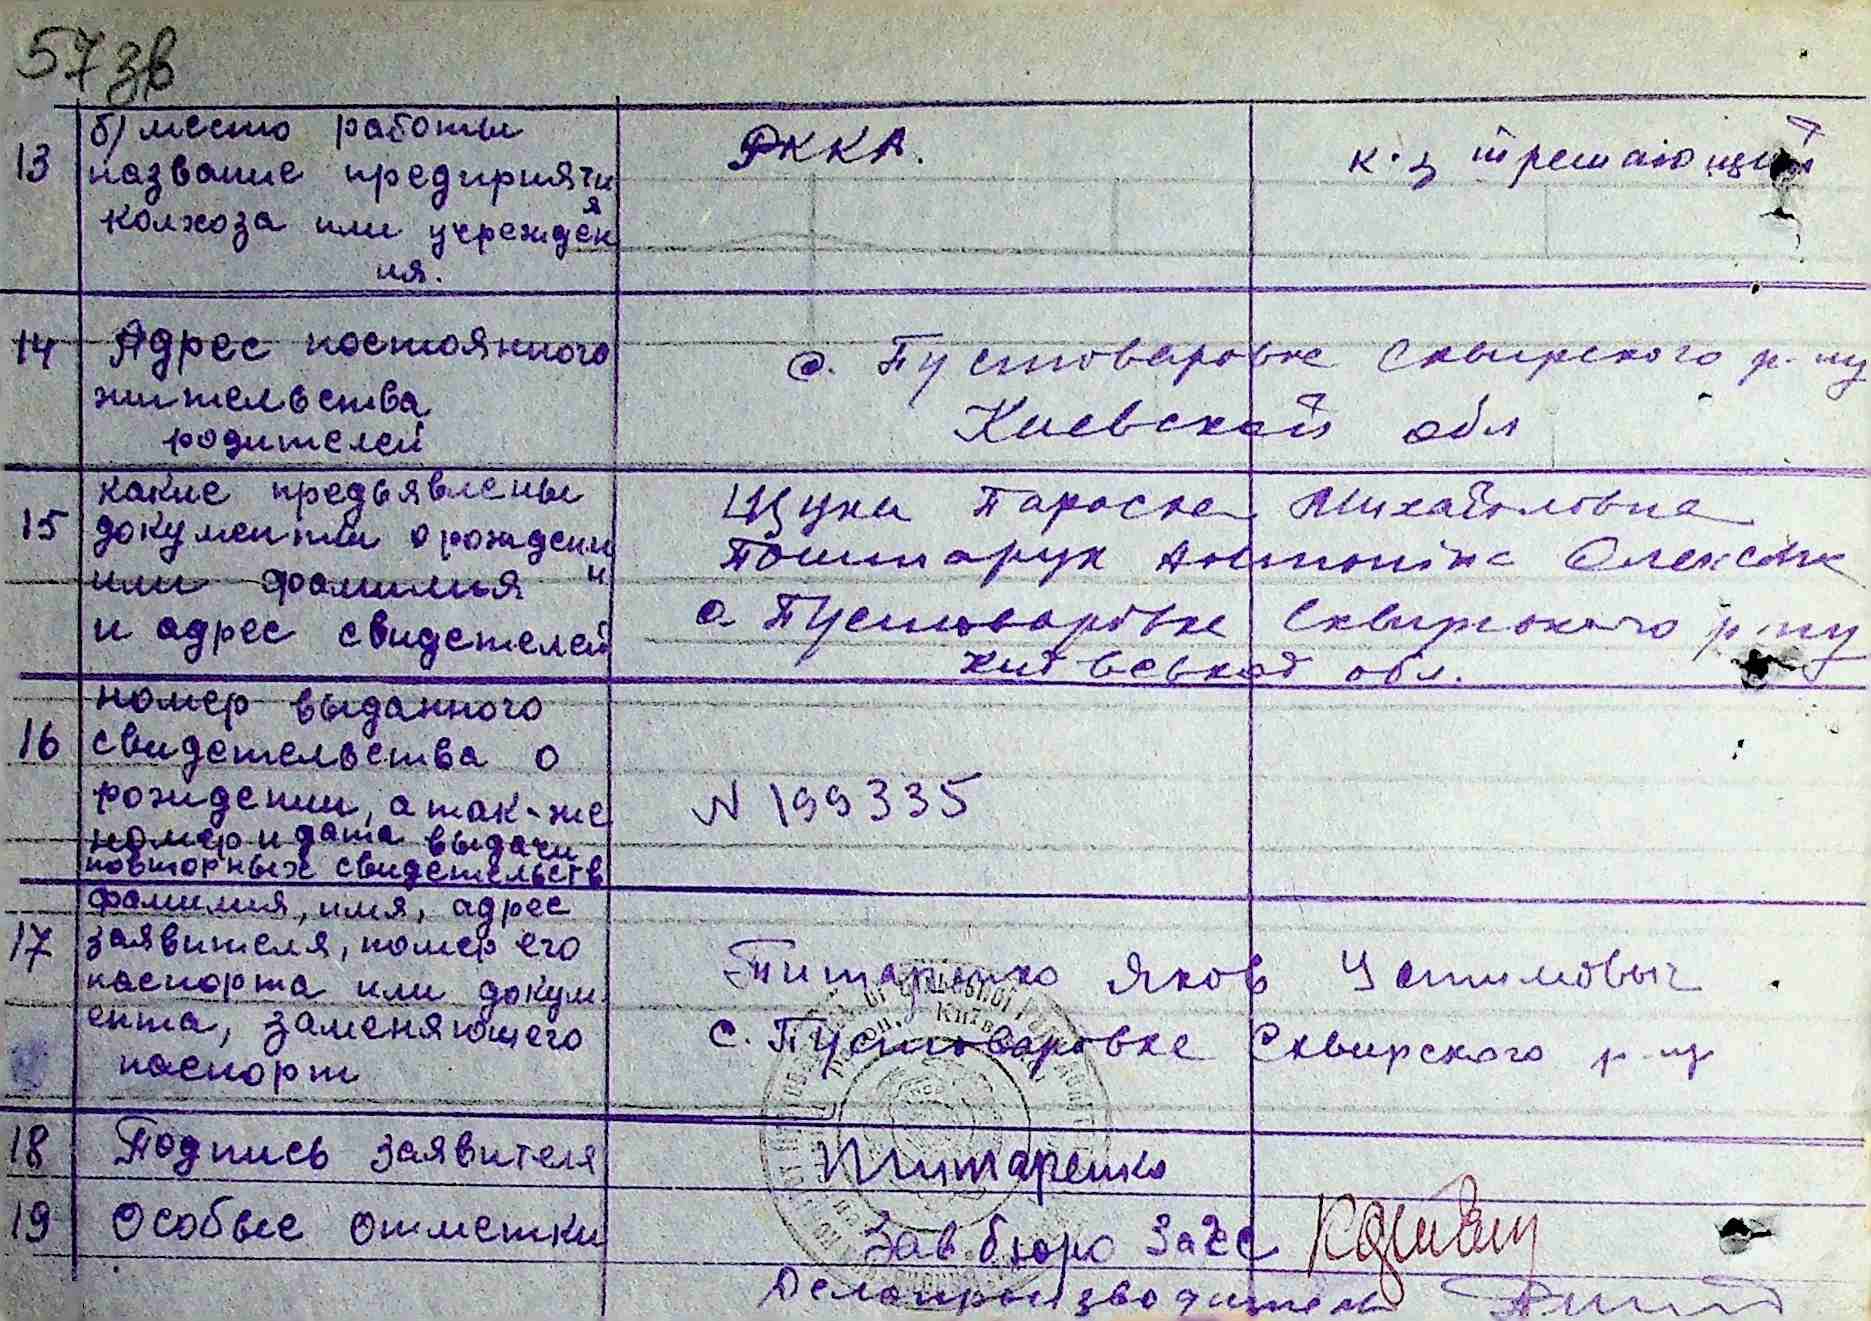 57 зв
13 б) место работы
название предприяти
я
колхоза или учрежден
ия.
РККА.
к-з
14 Адрес постоянного
жительства
родителей
с. Пустоваровке Сквирского р-ну
Киевской обл
15 какие предъявлены
документы о рождени
и
или фамилия
и адрес свидетелей
Щука Параска Михайловна
Антоніна
с Пустоваровке Сквирского р-ну
обл.
16 номер выданного
свидетельства о
рождении, а так-же
номер и дата выдачи
повторных свидетельств
N 199335
17 фамилия, имя, адрес
заявителя, номер его
паспорта или докум
ента, заменяющего
паспорт
Титаренко Яков Устимовыч
с. Пустоваровке Сквирского р-ну
18 Подпись заявителя
Титаренко
19 Особые отметки
Зав бюро Загс
Делопроизводитель